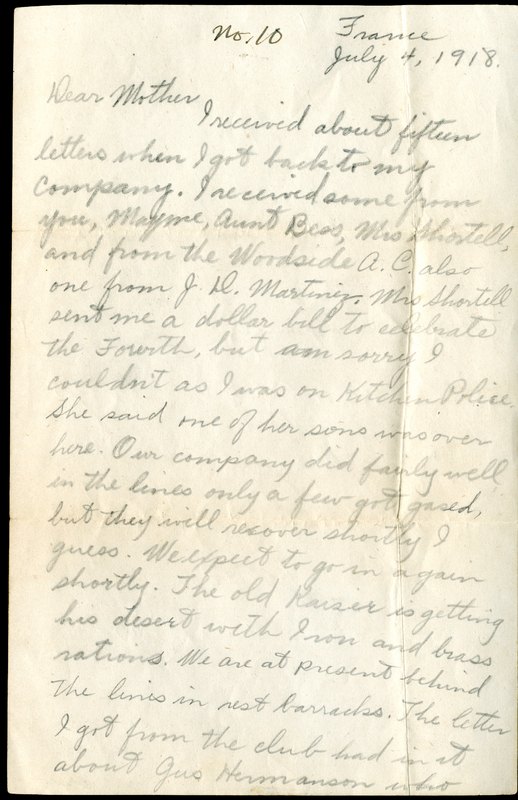 No. 10
France
July 4, 1918.
Dear Mother
I received about fifteen
letters when I got back to my
Company. I received some from
you, Mayme, Aunt Bess, Mrs Shortell,
and from the Woodside A. C. also
one from J. D. Martinez. Mrs Shortell
sent me a dollar bill to celebrate
the Fourth, but am sorry I
couldn't as I was on Kitchen Police.
She said one of her sons was over
here. Our company did fairly well
in the lines only a few got gased,
but they will recover shortly I
guess. We expect to go in again
shortly. The old Kaiser is getting
his desert with Iron and brass
rations. We are at present behind
the lines in rest barracks. The letter
I got from the club had in it
about Gus Hermanson who